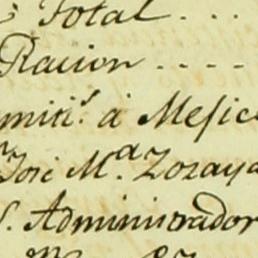 Total . . .
Racion - - - -
mitir. á Mesic
José M.ª Zozaya
S. Administrador